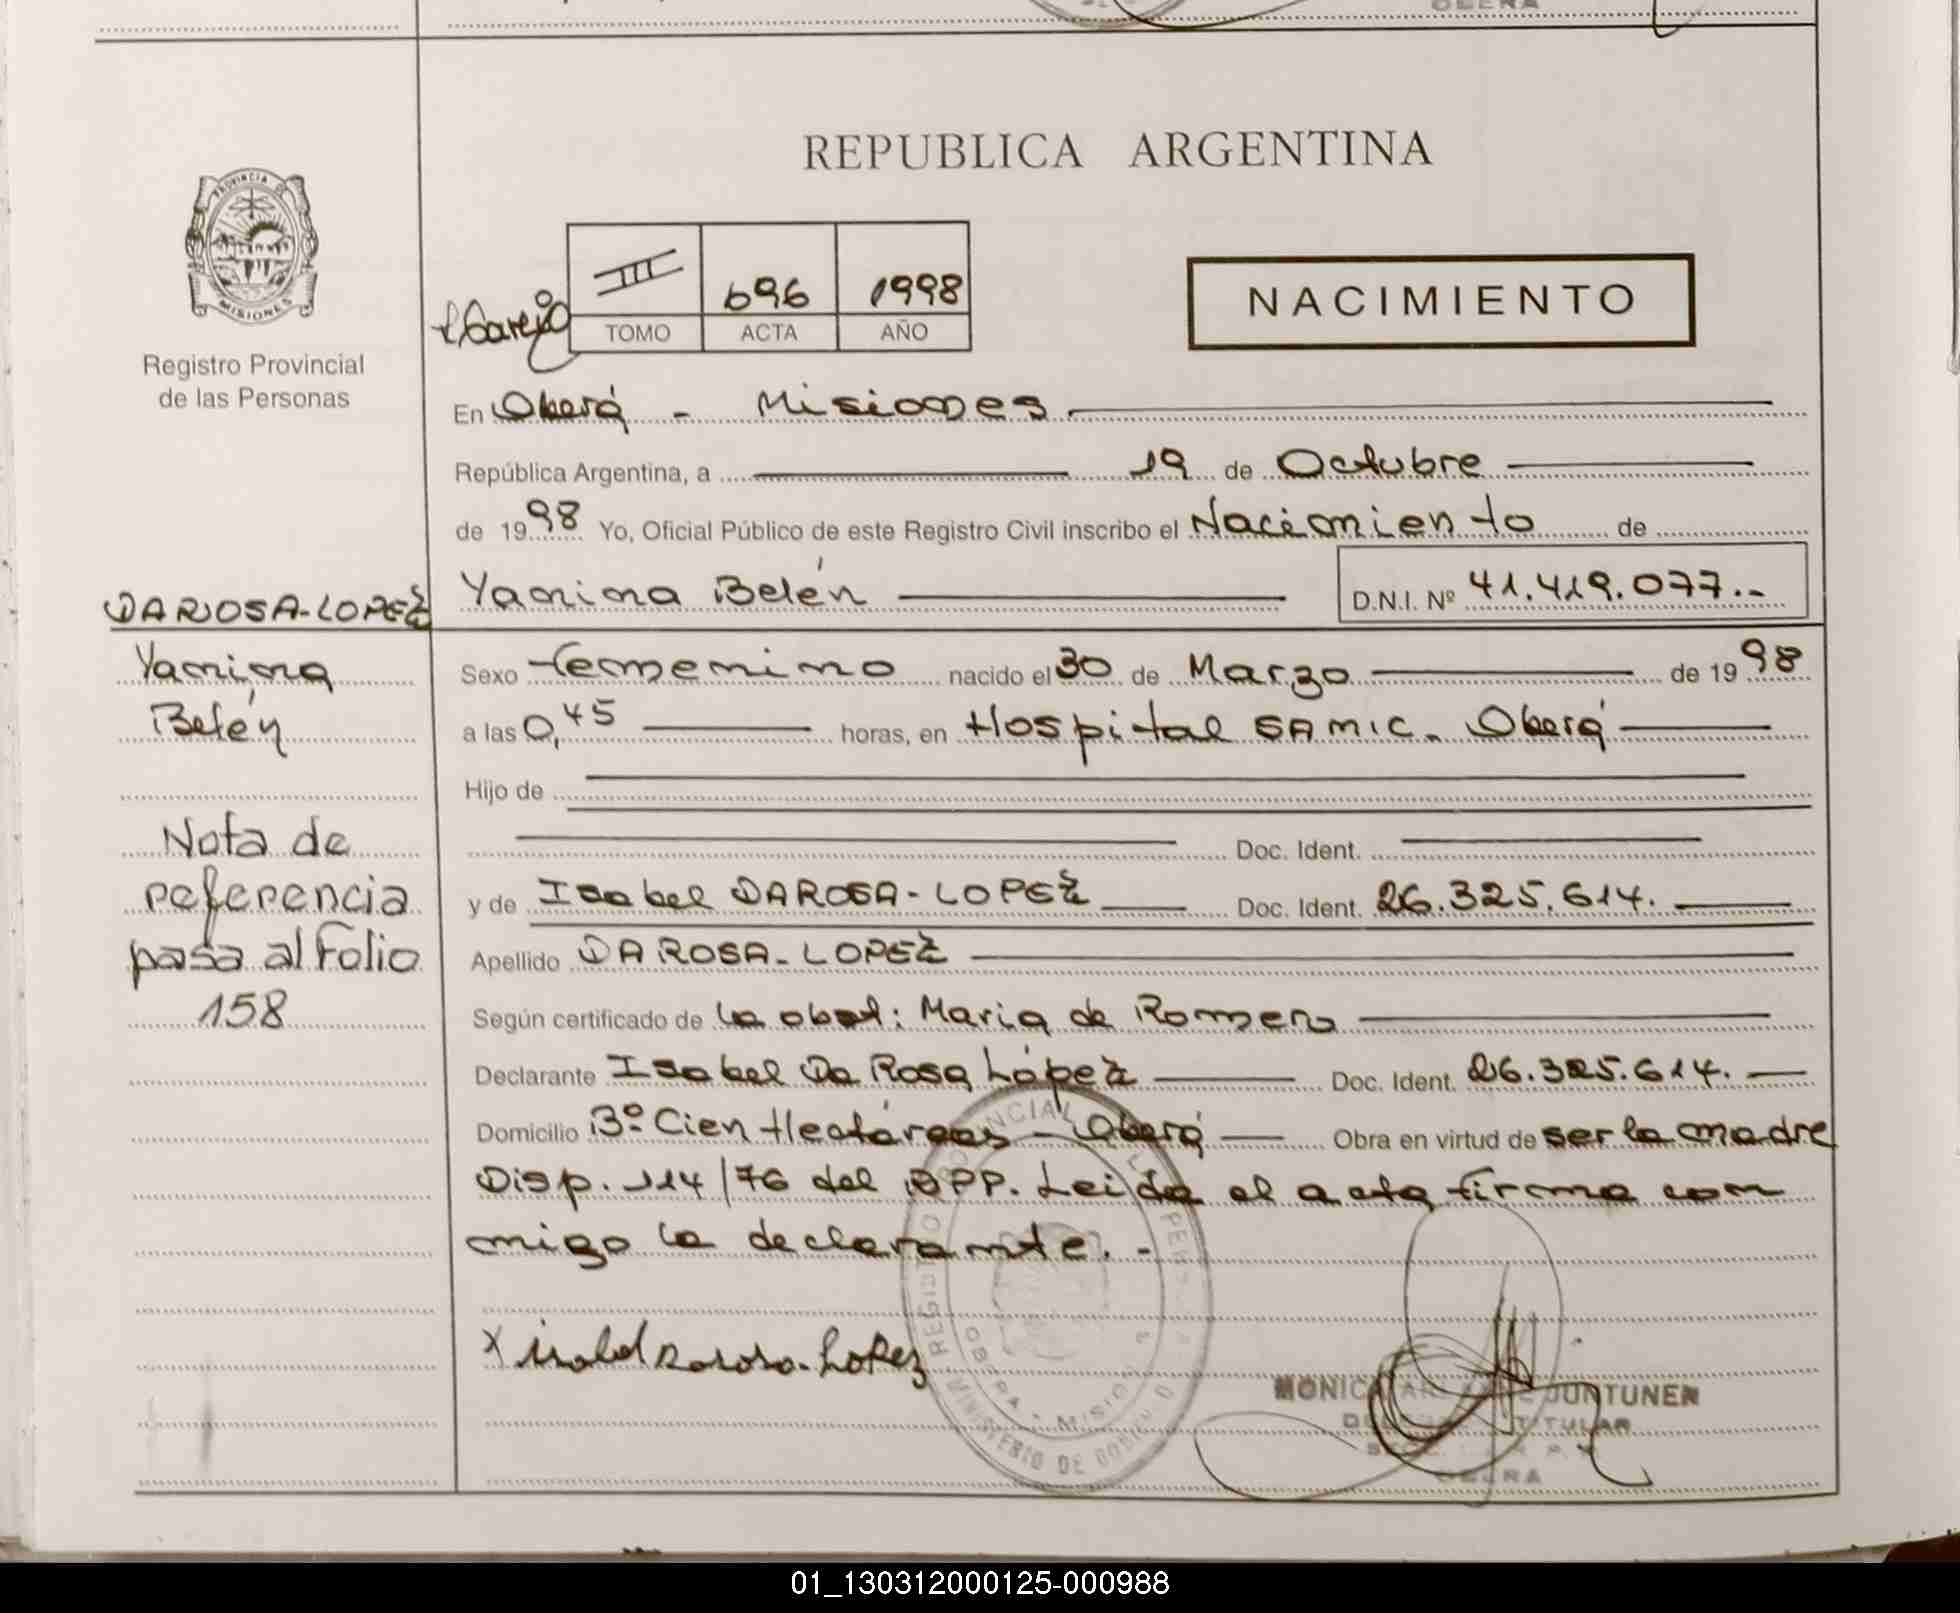 REPUBLICA ARGENTINA
PROVINCIA DE
MISIONES
Registro Provincial
de las Personas
III 696 1998
TOMO ACTA AÑO
NACIMIENTO
En Oberá - Misiones
República Argentina, a 19 de Octubre
de 1998 Yo, Oficial Público de este Registro Civil inscribo el Nacimiento de
Yanina Belén D.N.I. Nº 41.419.077.-
DAROSA-LOPEZ
Yanina
Belén
Nota de
referencia
pasa al Folio
158
Sexo femenino nacido el 30 de Marzo de 1998
a las 0,45 horas, en Hospital SAMIC. Oberá
Hijo de
Doc. Ident.
y de Isabel DAROSA-LOPEZ Doc. Ident. 26.325.614.
Apellido DAROSA-LOPEZ
Según certificado de la obst: Maria de Romero
Declarante Isabel Da Rosa López Doc. Ident. 26.325.614.
Domicilio Bº Cien Hectáreas - Oberá Obra en virtud de ser la madre
Disp. 114/76 del RPP. Leída el acta firma con
migo la declarante. -
x Isabel Darosa-Lopez
MONICA JUNTUNEN
TITULAR
OBERA
REGISTRO PROVINCIAL
OBERA - MISIONES
MINISTERIO DE GOBIERNO
01_130312000125-000988